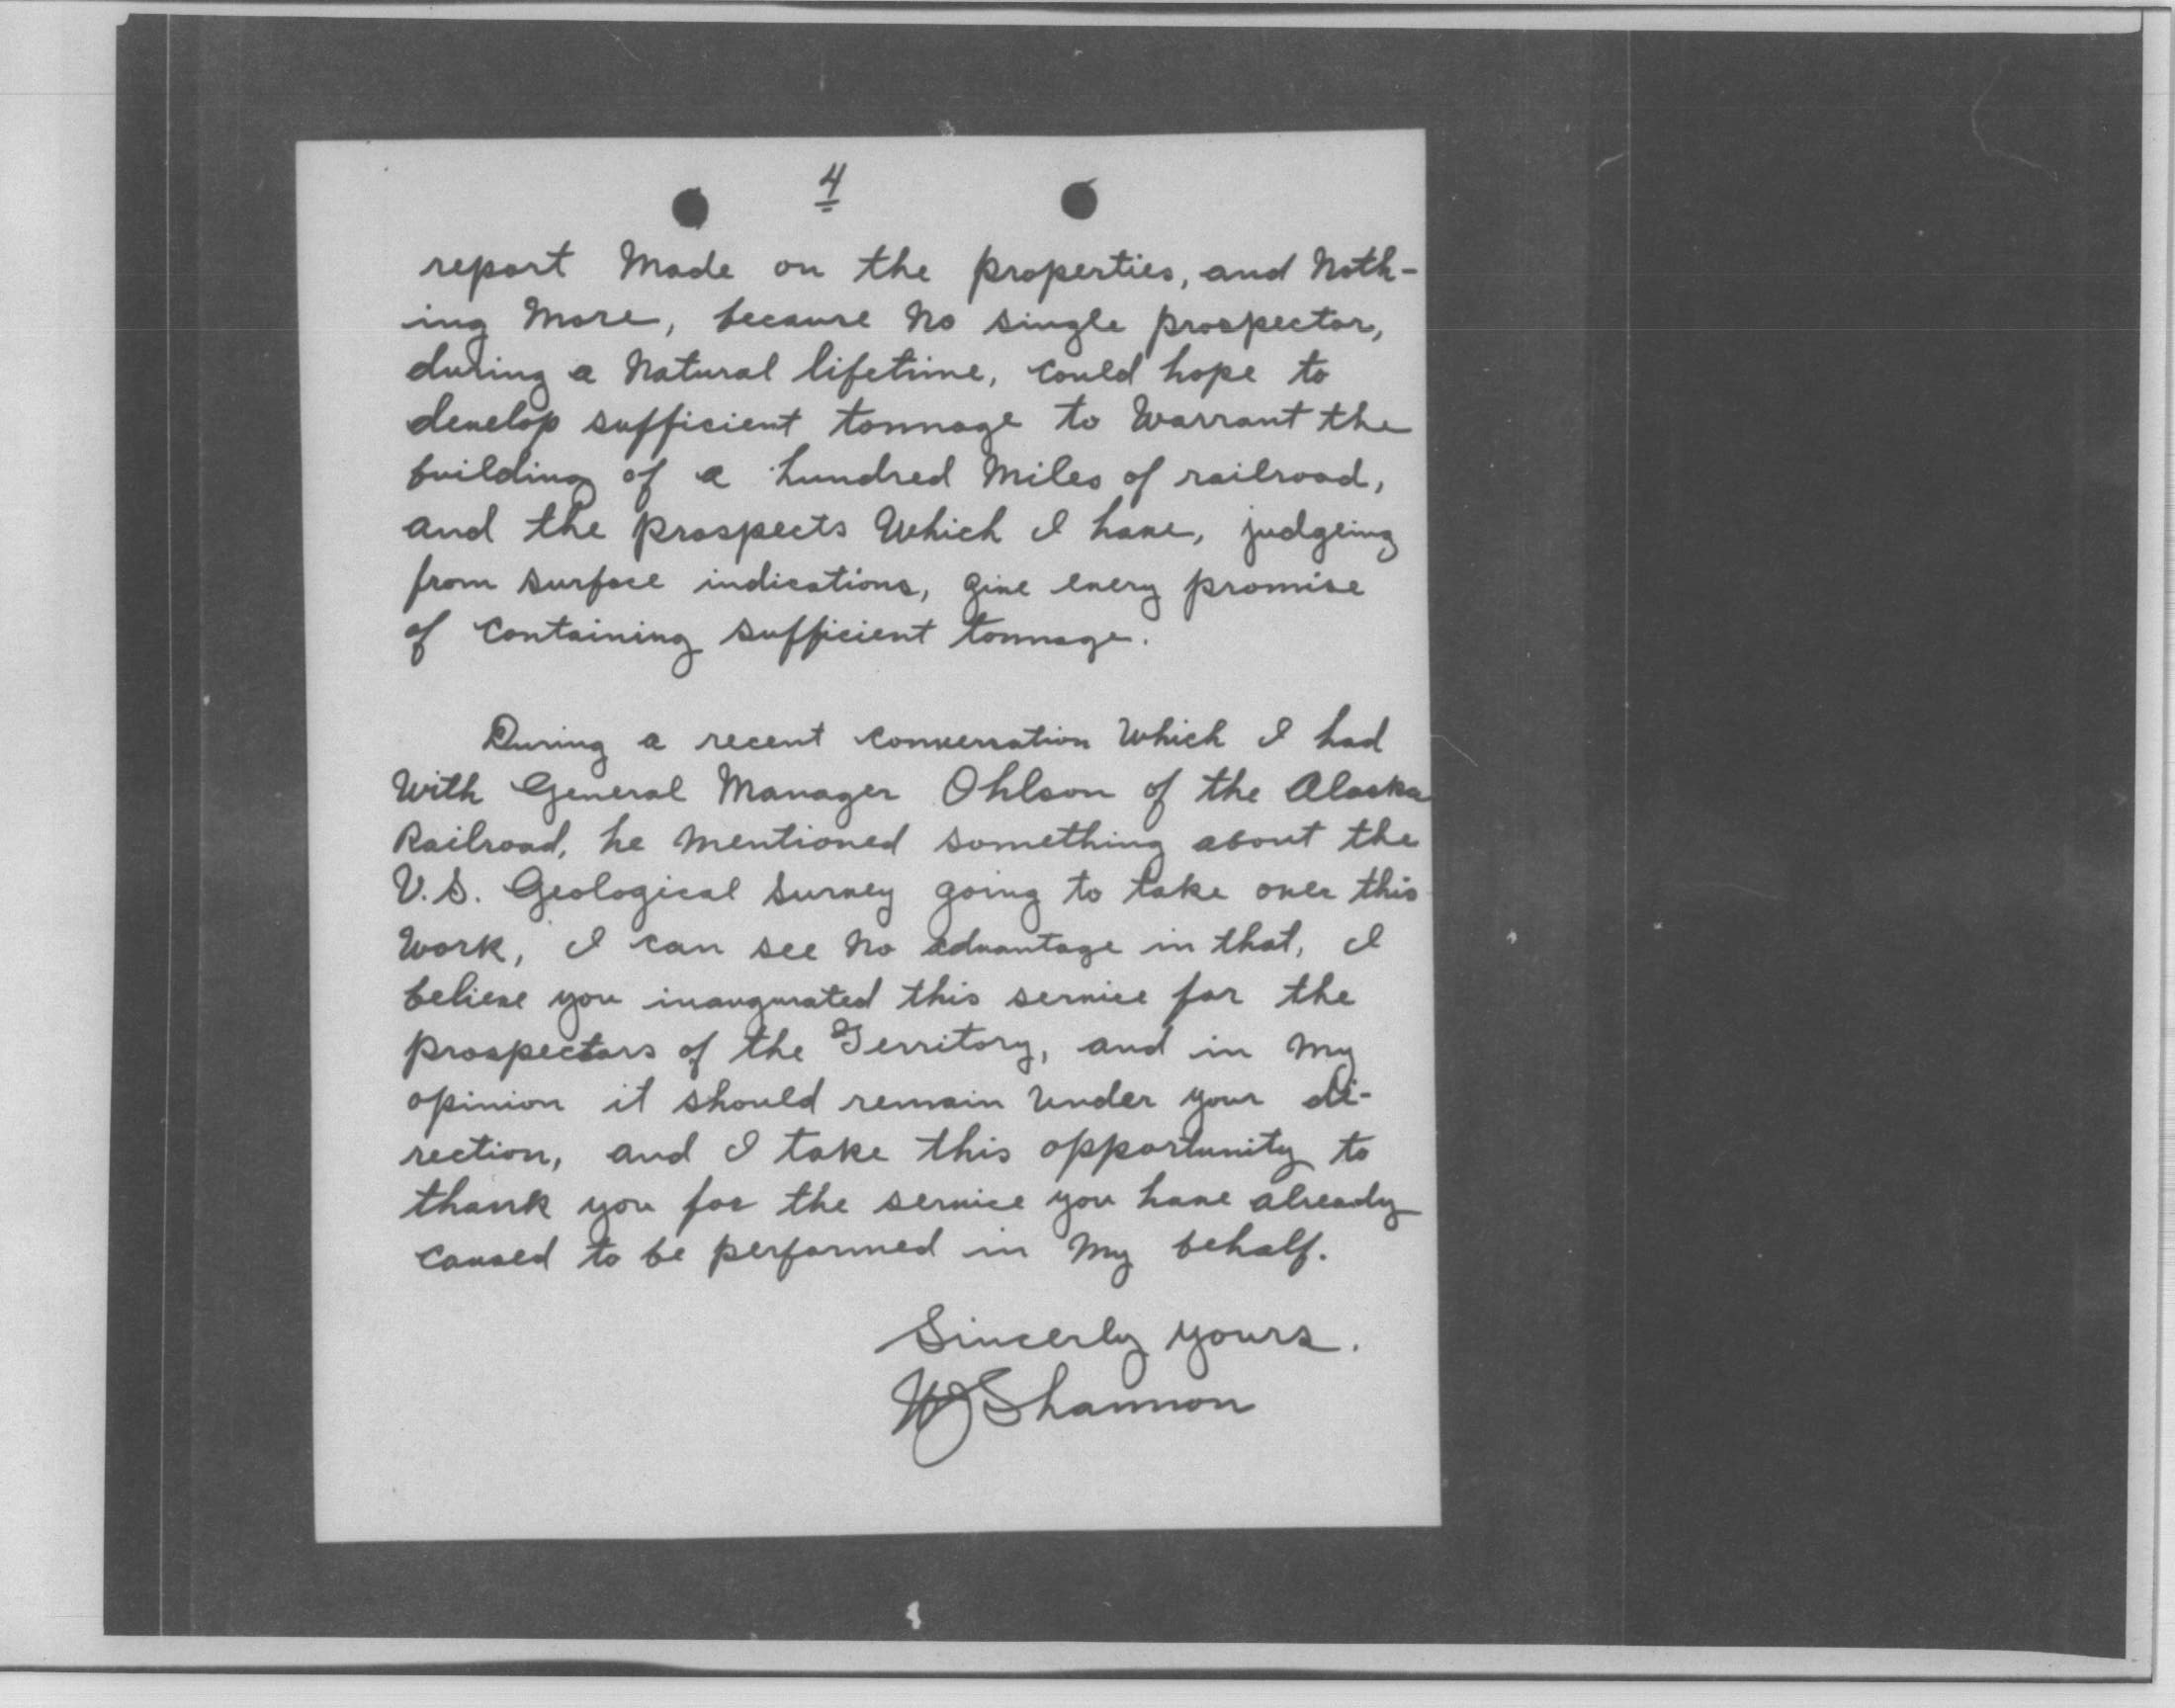 4
report made on the properties, and noth-
ing more, because no single prospector,
during a natural lifetime, could hope to
develop sufficient tonnage to warrant the
building of a hundred miles of railroad,
and the prospects which I have, judgeing
from surface indications, give every promise
of containing sufficient tonnage.
During a recent conversation which I had
with General Manager Ohlson of the Alaska
Railroad, he mentioned something about the
U.S. Geological Survey going to take over this
work, I can see no advantage in that, I
believe you inaugurated this service for the
prospectors of the Territory, and in my
opinion it should remain under your di-
rection, and I take this opportunity to
thank you for the service you have already
caused to be performed in my behalf.
Sincerly yours.
WJ Shannon